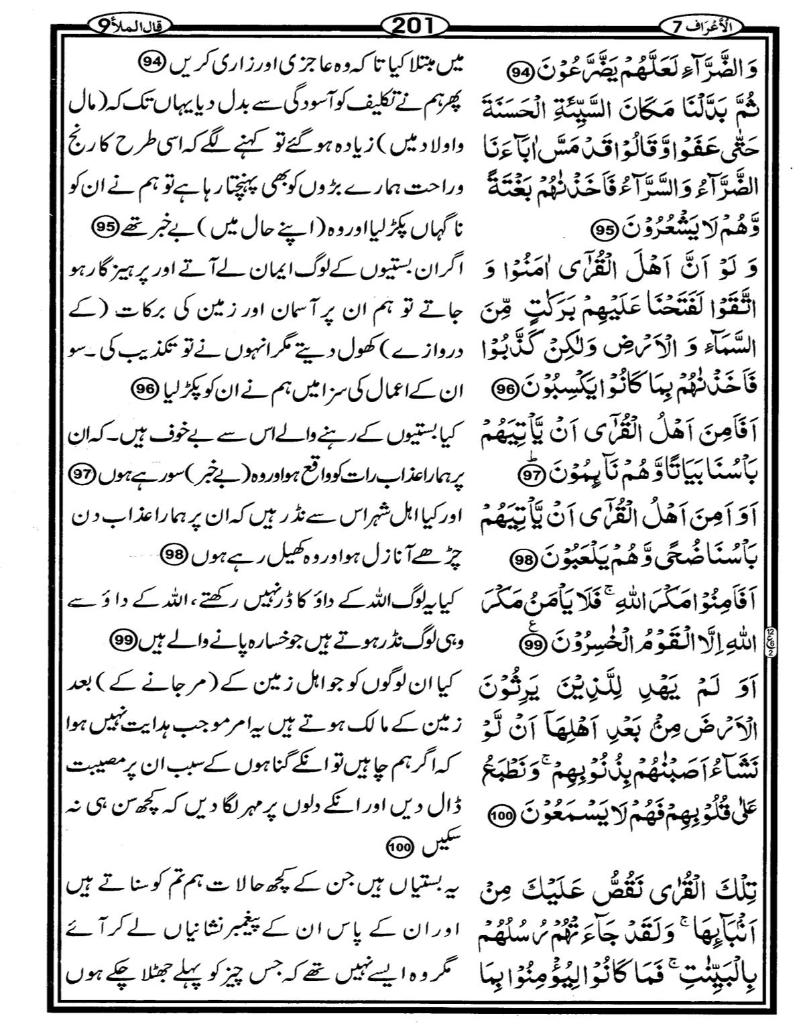 الاَعرَاف 7
201
قال الملأ 9
وَالضَّرَّآءِ لَعَلَّهُمْ يَضَّرَّعُوْنَ 94
ثُمَّ بَدَّلْنَا مَكَانَ السَّيِّئَةِ الْحَسَنَةَ
حَتّٰى عَفَوْا وَّقَالُوْا قَدْ مَسَّ اٰبَآءَنَا
الضَّرَّآءُ وَالسَّرَّآءُ فَاَخَذْنٰهُمْ بَغْتَةً
وَّهُمْ لَا يَشْعُرُوْنَ 95
وَ لَوْ اَنَّ اَهْلَ الْقُرٰٓى اٰمَنُوْا وَ
اتَّقَوْا لَفَتَحْنَا عَلَيْهِمْ بَرَكٰتٍ مِّنَ
السَّمَآءِ وَ الْاَرْضِ وَلٰكِنْ كَذَّبُوْا
فَاَخَذْنٰهُمْ بِمَا كَانُوْا يَكْسِبُوْنَ 96
اَفَاَمِنَ اَهْلُ الْقُرٰٓى اَنْ يَّاْتِيَهُمْ
بَاْسُنَا بَيَاتًا وَّهُمْ نَآىِٕمُوْنَ ؕ 97
اَوَ اَمِنَ اَهْلُ الْقُرٰٓى اَنْ يَّاْتِيَهُمْ
بَاْسُنَا ضُحًى وَّهُمْ يَلْعَبُوْنَ 98
اَفَاَمِنُوْا مَكْرَ اللّٰهِ ۚ فَلَا يَاْمَنُ مَكْرَ
اللّٰهِ اِلَّا الْقَوْمُ الْخٰسِرُوْنَ ع 99
اَوَ لَمْ يَهْدِ لِلَّذِيْنَ يَرِثُوْنَ
الْاَرْضَ مِنْۢ بَعْدِ اَهْلِهَاۤ اَنْ لَّوْ
نَشَآءُ اَصَبْنٰهُمْ بِذُنُوْبِهِمْ ۚ وَنَطْبَعُ
عَلٰى قُلُوْبِهِمْ فَهُمْ لَا يَسْمَعُوْنَ 100
تِلْكَ الْقُرٰى نَقُصُّ عَلَيْكَ مِنْ
اَنْۢبَآىِٕهَا ۚ وَلَقَدْ جَآءَتْهُمْ رُسُلُهُمْ
بِالْبَيِّنٰتِ ۚ فَمَا كَانُوْا لِيُؤْمِنُوْا بِمَا
میں مبتلا کیا تا کہ وہ عاجزی اور زاری کریں 94
پھر ہم نے تکلیف کو آسودگی سے بدل دیا یہاں تک کہ (مال
و اولاد میں) زیادہ ہو گئے تو کہنے لگے کہ اسی طرح کا رنج
و راحت ہمارے بڑوں کو بھی پہنچتا رہا ہے تو ہم نے ان کو
ناگہاں پکڑ لیا اور وہ (اپنے حال میں) بے خبر تھے 95
اگر ان بستیوں کے لوگ ایمان لے آتے اور پرہیزگار ہو
جاتے تو ہم ان پر آسمان اور زمین کی برکات (کے
دروازے) کھول دیتے مگر انہوں نے تو تکذیب کی۔ سو
ان کے اعمال کی سزا میں ہم نے ان کو پکڑ لیا 96
کیا بستیوں کے رہنے والے اس سے بے خوف ہیں۔ کہ ان
پر ہمارا عذاب رات کو واقع ہو اور وہ (بے خبر) سو رہے ہوں 97
اور کیا اہل شہر اس سے نڈر ہیں کہ ان پر ہمارا عذاب دن
چڑھے آنازل ہو اور وہ کھیل رہے ہوں 98
کیا یہ لوگ اللہ کے داؤ کا ڈر نہیں رکھتے، اللہ کے داؤ سے
وہی لوگ نڈر ہوتے ہیں جو خسارہ پانے والے ہیں 99
کیا ان لوگوں کو جو اہل زمین کے (مر جانے کے) بعد
زمین کے مالک ہوتے ہیں یہ امر موجب ہدایت نہیں ہوا
کہ اگر ہم چاہیں تو انکے گناہوں کے سبب ان پر مصیبت
ڈال دیں اور انکے دلوں پر مہر لگا دیں کہ کچھ سن ہی نہ
سکیں 100
یہ بستیاں ہیں جن کے کچھ حالات ہم تم کو سناتے ہیں
اور ان کے پاس ان کے پیغمبر نشانیاں لے کر آئے
مگر وہ ایسے نہیں تھے کہ جس چیز کو پہلے جھٹلا چکے ہوں